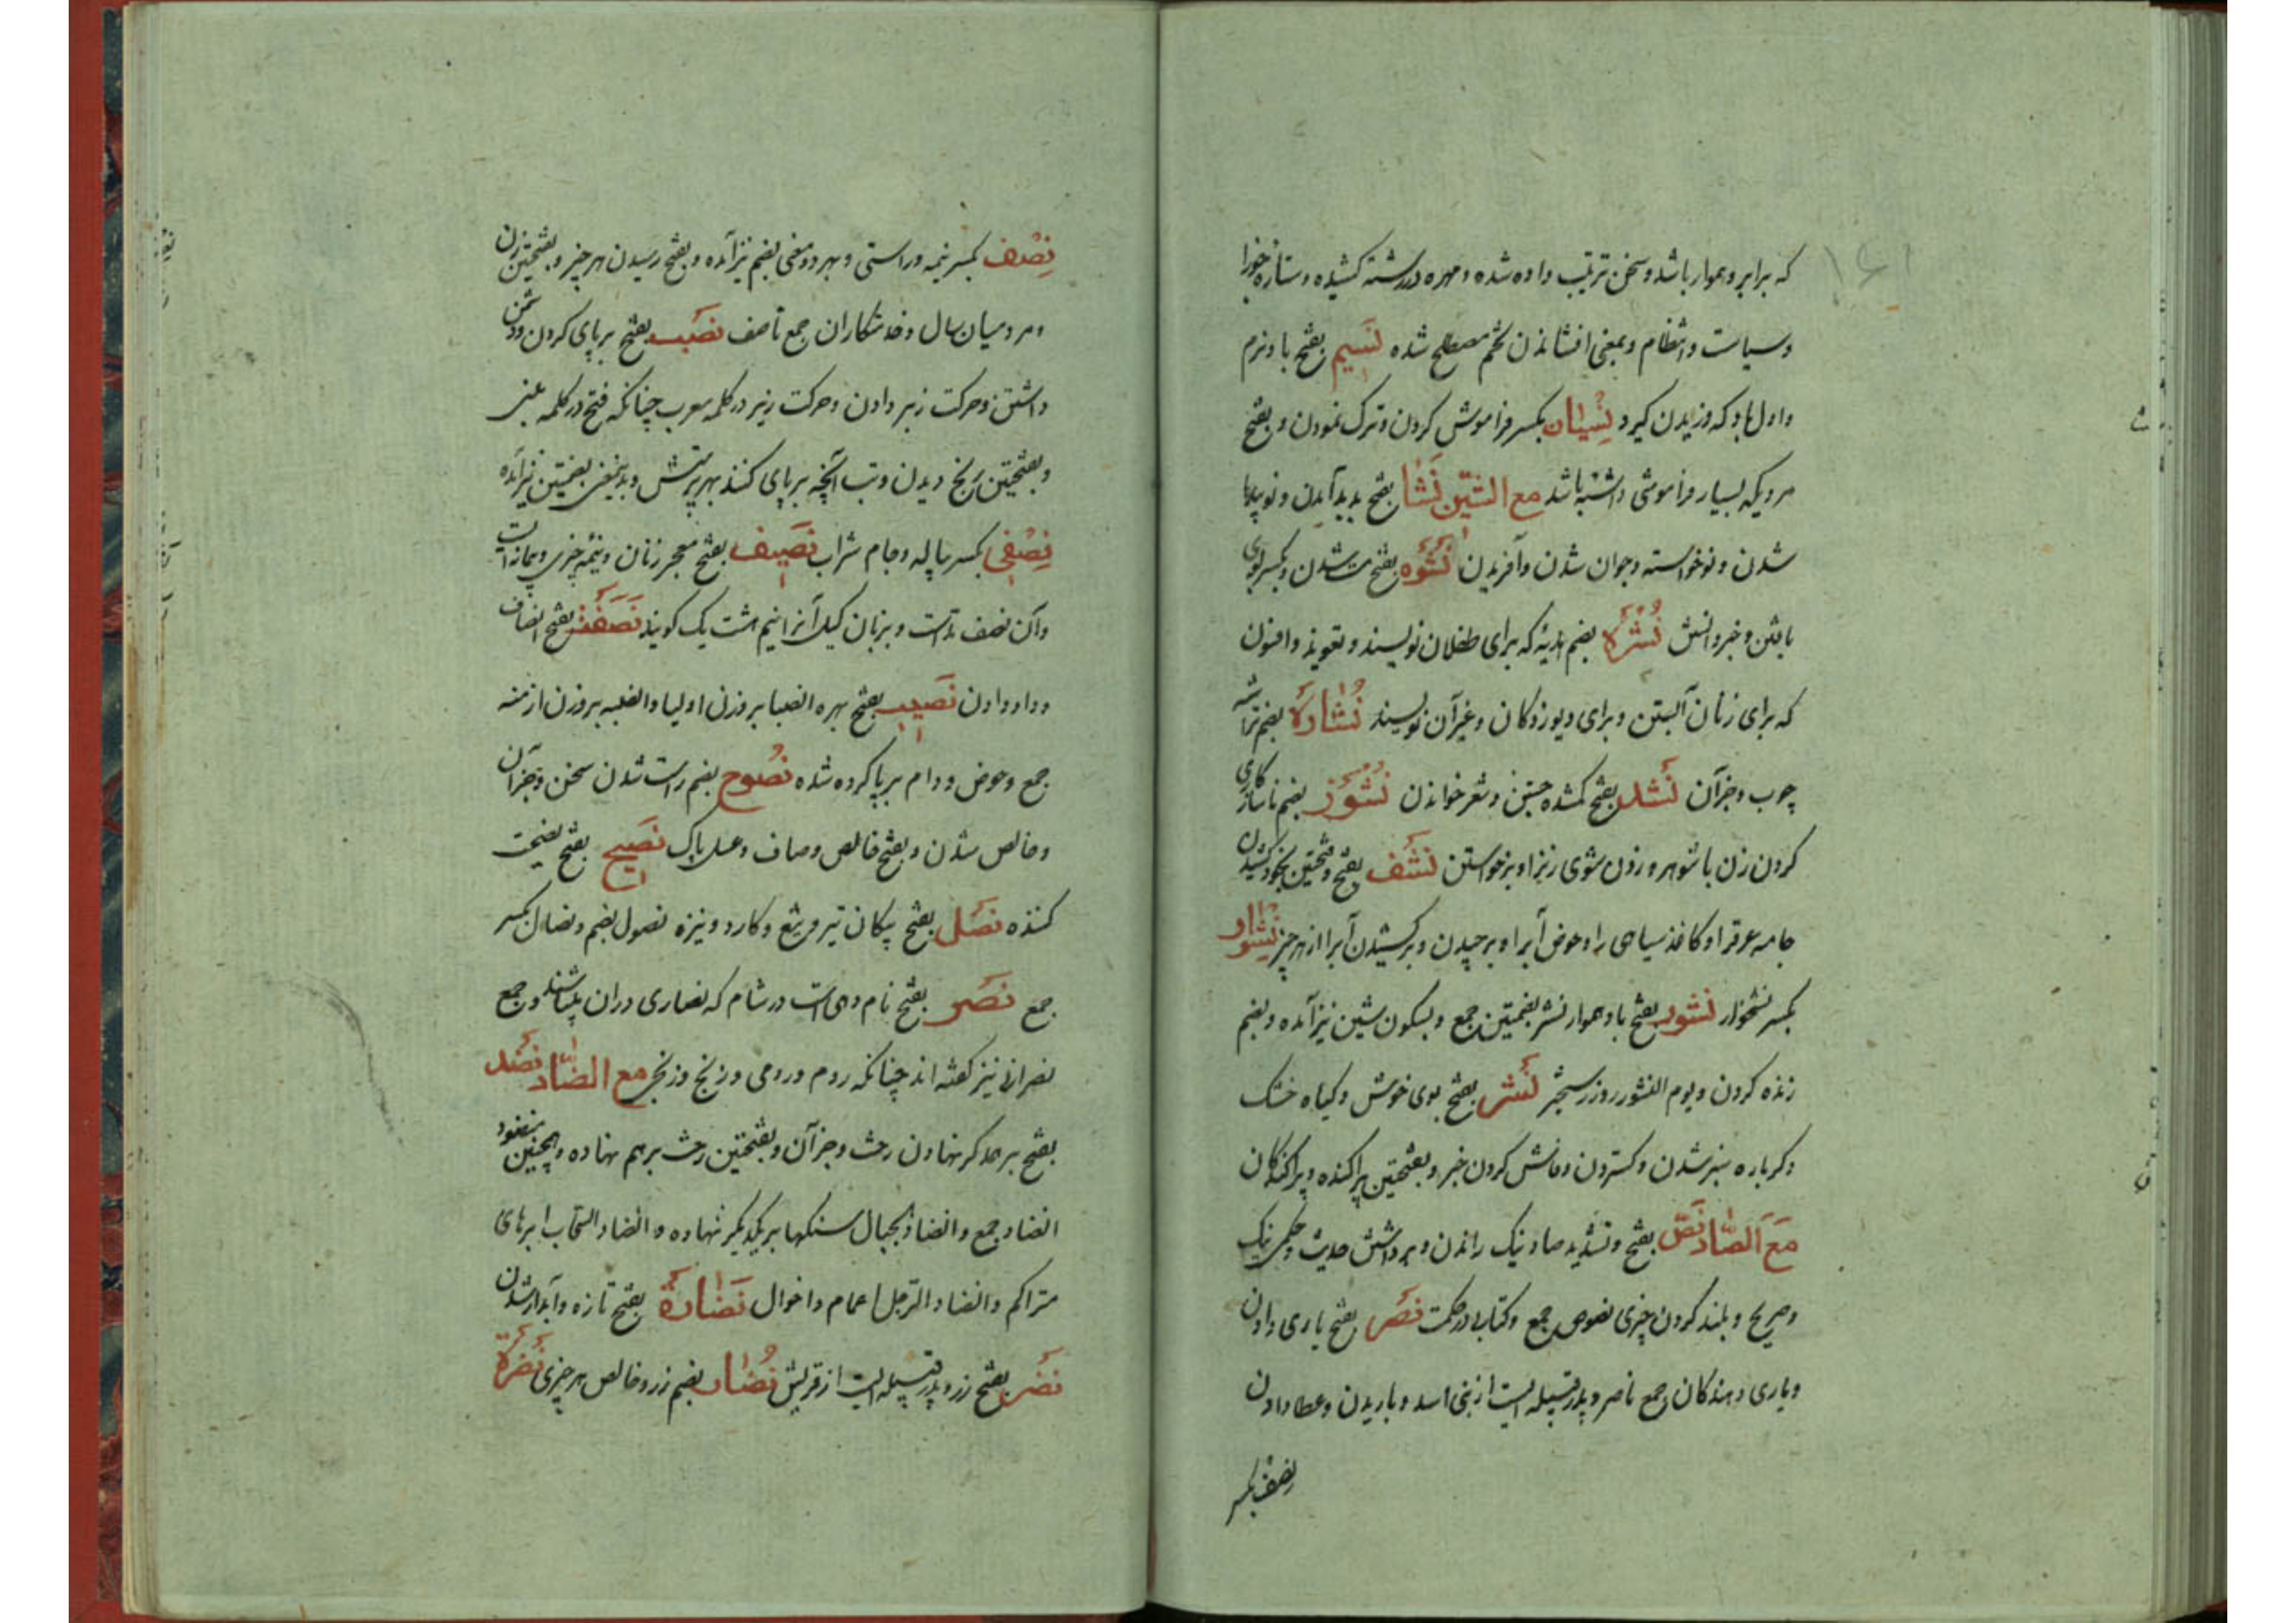 که برابر و هموار باشد و سخن ترتیب داده شده و مهره در رشته کشیده و ستاره جوزا
و سیاست و انتظام و بمعنی افشاندن تخم مصطلح شده نَسیم بفتح باد نرم
و اول باد که وزیدن کیرد نِسیان بکسر فراموش کردن و ترک نمودن و بفتح
مردیکه بسیار فراموشی داشته باشد مع الشین نَشا بفتح پدید آمدن و نو پیدا
شدن و نوخواسته و جوان شدن و آفریدن نَشوه بفتح مست شدن و بکسر بوی
یافتن و خبر دانستن نُشره بضم که برای طفلان نویسند و تعویذ و افسون
که برای زنان آبستن و برای دیوزدکان و غیر آن نویسند نُشارة بضم تراشه
چوب و جز آن نَشد بفتح کمشده جستن و شعر خواندن نُشُوز بضم ناسازکاری
کردن زن با شوهر و زدن شوی زنرا و برخواستن نَشف بفتح و فتحتین بخود کشیدن
جامه عرقرا و کاغذ سیاهی را و حوض آبرا و برچیدن و برکشیدن آبرا از هر چیز نِشوار
بکسر نشخوار نشور بفتح باد هموار نشر بضمتین جمع و بسکون شین نیز آمده و بضم
زنده کردن و یوم النشور روز رستخیز نَشر بفتح بوی خوش و کیاه خشک
دکرباره سبز شدن و کستردن و فاش کردن خبر و بفتحتین پراکنده و پراکندکان
مَعَ الصّاد نَصّ بفتح و تشدید صاد نیک راندن و برداشتن حدیث و حکم نیک
و صریح و بلند کردن چیزی نصوص جمع و کتابی در حکمت نَصر بفتح یاری دادن
و یاری دهندکان جمع ناصر و پدر قبیله ایست از بنی اسد و باریدن و عطا دادن
نصف بکسر
نِصْف بکسر نیمه و راستی و بهر دو معنی بضم نیز آمده و بفتح رسیدن هر چیز و بفتحتین زن
و مرد میان سال و خدمتکاران جمع ناصف نَصَب بفتح برپای کردن و دشمن
داشتن و حرکت زبر دادن و حرکت زبر در کلمه معرب چنانکه فتح در کلمه مبنی
و بفتحتین رنج دیدن و تب آنچه برپای کنند بهر پرستش و بدینمعنی بضمتین نیز آمده
نِصْفی بکسر پیاله و جام شراب نَصیف بفتح معجر زنان و نیمه چیزی و پیمانه ایست
و آن نصف مد است و بزبان کیل آنرا نیم هشت یک کویند نَصَفَت بفتح انصاف
و داد دادن نَصیب بفتح بهره انصبا بر وزن اولیا و انصبه بر وزن ازمنه
جمع و حوض و دام برپا کرده شده نُصُوح بضم راست شدن سخن و جز آن
و خالص شدن و بفتح خالص و صاف و عسل پاک نَصیح بفتح نصیحت
کننده نَصل بفتح پیکان تیر و تیغ و کارد و نیزه نصول بضم و نصال بکسر
جمع نَصر بفتح نام دهی است در شام که نصاری دران میباشند و جمع
نصرانی نیز کفته اند چنانکه روم و رومی و زنج و زنجی مع الضّاد نَضد
بفتح بر همدکر نهادن رخت و جز آن و بفتحتین رخت بر هم نهاده و همچنین منضود
انضاد جمع و انضاد الجبال سنکها بر یکدیکر نهاده و انضاد السحاب ابرهای
متراکم و انضاد الرجل اعمام و اخوال نَضَارَة بفتح تازه و آبدار شدن
نَضر بفتح زر و پدر قبیله ایست از قریش نُضار بضم زر و خالص هر چیزی نَضرة